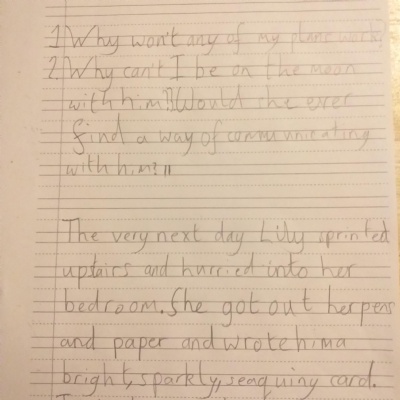 1 Why won't any of my plans work?
2. Why can't I be on the moon
with him?! Would she ever
find a way of communicating
with him? !!
The very next day Lily sprinted
uptairs and hurried into her
bedroom. She got out her pens
and paper and wrote him a
bright, sparkly, seaquiny card.